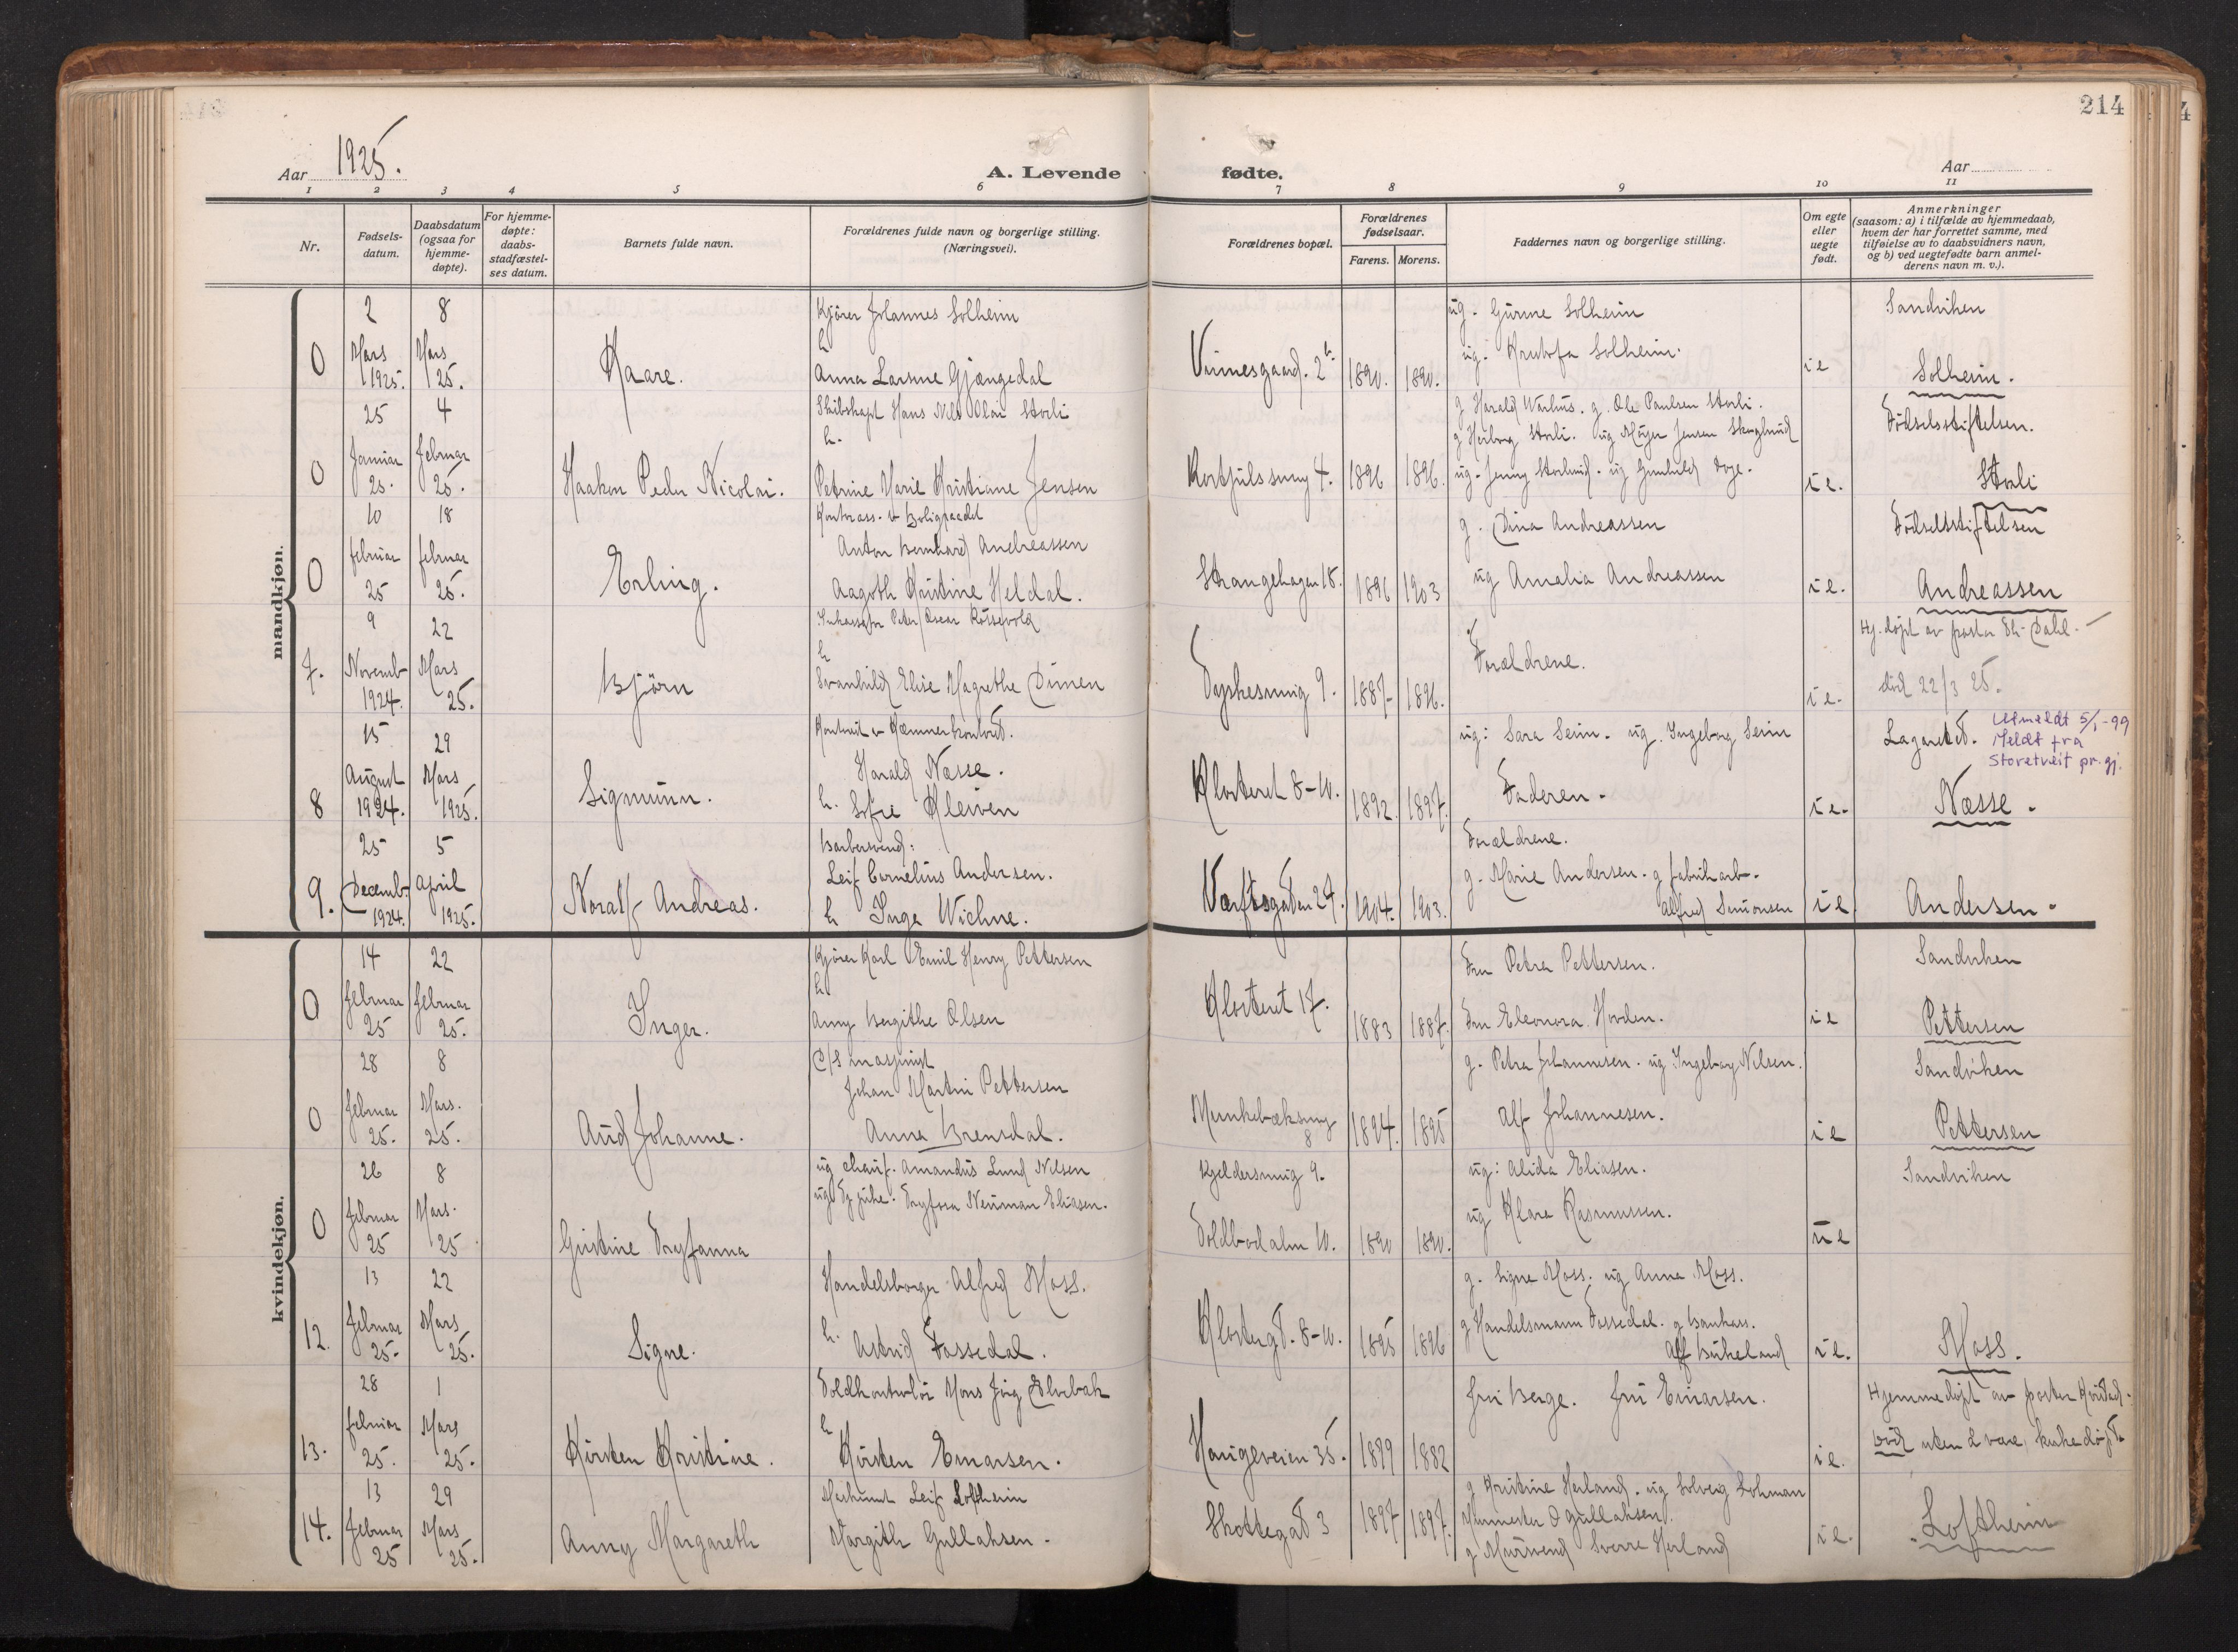 214
Aar 1925.
A. Levende fødte.
Aar
1 2 3 4 5 6 7 8 9 10 11
Nr.
Fødsels-
datum.
Daabsdatum
(ogsaa for
hjemme-
døpte).
For hjemme-
døpte:
daabs-
stadfæstel-
ses datum.
Barnets fulde navn.
Forældrenes fulde navn og borgerlige stilling.
(Næringsvei).
Forældrenes bopæl.
Forældrenes
fødselsaar.
Farens. Morens.
Faddernes navn og borgerlige stilling.
Om egte
eller
uegte
født.
Anmerkninger
(saasom: a) i tilfælde av hjemmedaab,
hvem der har forrettet samme, med
tilføielse av to daabsvidners navn,
og b) ved uegtefødte barn anmel-
derens navn m. v.).
mandkjøn.
0
2
Mars
1925.
8
Mars
25.
Kaare.
Kjører Johannes Solheim
h
Anna Larsine Gjængedal
1890. 1890.
ug. Gurine Solheim
Solheim.
ie
Sandviken
Solheim.
0
25
Januar
25.
4
Februar
25.
Haakon Peder Nicolai.
Skibskapt Hans Nils Olai Storli
h.
Petrine Marie Kristiane Jensen
4. 1896 1896.
g Harald g. Ole Paulsen Storli.
g Herborg Storli. ug Jensen
ug. Jenny ug Gunhild
ie.
Fødselsstiftelsen.
Storli
0
10
Februar
25
18
Februar
25.
Erling.
Kontorass. v Boligraadet
Anton Bernhard Andreassen
Aagoth Kristine Heldal.
Strangehagen 18. 1896 1903
g. Dina Andreassen
ug Amalia Andreassen
ie.
Fødselsstiftelsen
Andreassen
7.
9
Novemb
1924.
22
Mars
25.
Bjørn
Peter Oscar
h
Svanhild Elise Magrethe
9. 1887 1896.
Forældrene.
ie.
Hj. døpt av pastor Dahl.
død 22/3 25.
8
15
August
1924.
29
Mars
1925.
Sigmunn.
v Kæmnerkontoret.
Harald Næsse.
h. Sofie Kleiven
Klosteret 8-10. 1892. 1897.
ug: Sara Seim. ug. Ingeborg Seim
Faderen.
ie.
Lazarettet.
Utmeldt 5/1-99
Meldt fra
Storetveit pr.gj.
Næsse.
9.
25
Decemb.
1924.
5
April
1925.
Noralf Andreas.
Barbersvend:
Leif Cornelius Andersen.
h Inga Wichne.
Værftsgaten 27. 1904. 1903.
Forældrene.
g. Marie Andersen. g fabrikarb.
Alfred Simonsen
ie
Andersen.
kvindekjøn.
0
14
Februar
25
22
Februar
25.
Inger.
Kjører Karl Emil Henry Pettersen
h
Anny Bergithe Olsen
Klosteret 17. 1883 1887.
Fru Petra Pettersen.
Fru Eleonora Horden.
ie
Sandviken
Pettersen
0
28
Februar
25.
8
Mars.
25.
Aud Johanne.
D/S maskinist
Johan Martin Pettersen
Anna Brensdal.
Munkebæksmug
8 1894. 1895
g. Petra Johannesen. ug Ingeborg Nilsen.
Alf Johannesen.
ie
Sandviken
Pettersen
0
26
Februar
25
8
Mars.
25
Gustine Tryfanna
ug chauf. Amandus Lund Nilsen
ug Neuman Eliasen.
Kjeldersmug 9.
Toldbodalm 10. 1890 1890.
ug: Alida Eliasen.
ug Klara Rasmussen.
ue
Sandviken
12.
13
Februar
25.
22
Mars
25.
Signe.
Handelsborger Alfred Moss.
h. Astrid Fossedal.
Klostergt. 8-10. 1895 1896
g. Signe Moss. ug Anna Moss.
g Handelsmann Fossedal. g
Alf Birkeland
ie.
Moss.
13.
28
Februar
25.
1
Mars
25.
Kirsten Kristine.
Toldkontrolør Mons
h
Kirsten Einarsen.
Haugeveien 35. 1879 1882
fru Berge. fru Einarsen.
ie.
Hjemmedøpt av pastor
Død uten at være kirkedøpt.
14.
13
Februar
25
29
Mars
25.
Anny Margareth
Leif Loftheim
Margith Gullaksen.
Skottegat 3 1897 1897.
g Kristine Herland. ug Solveig Lohman
Gullaksen.
g Murersvend Sverre Herland
ie.
Loftheim